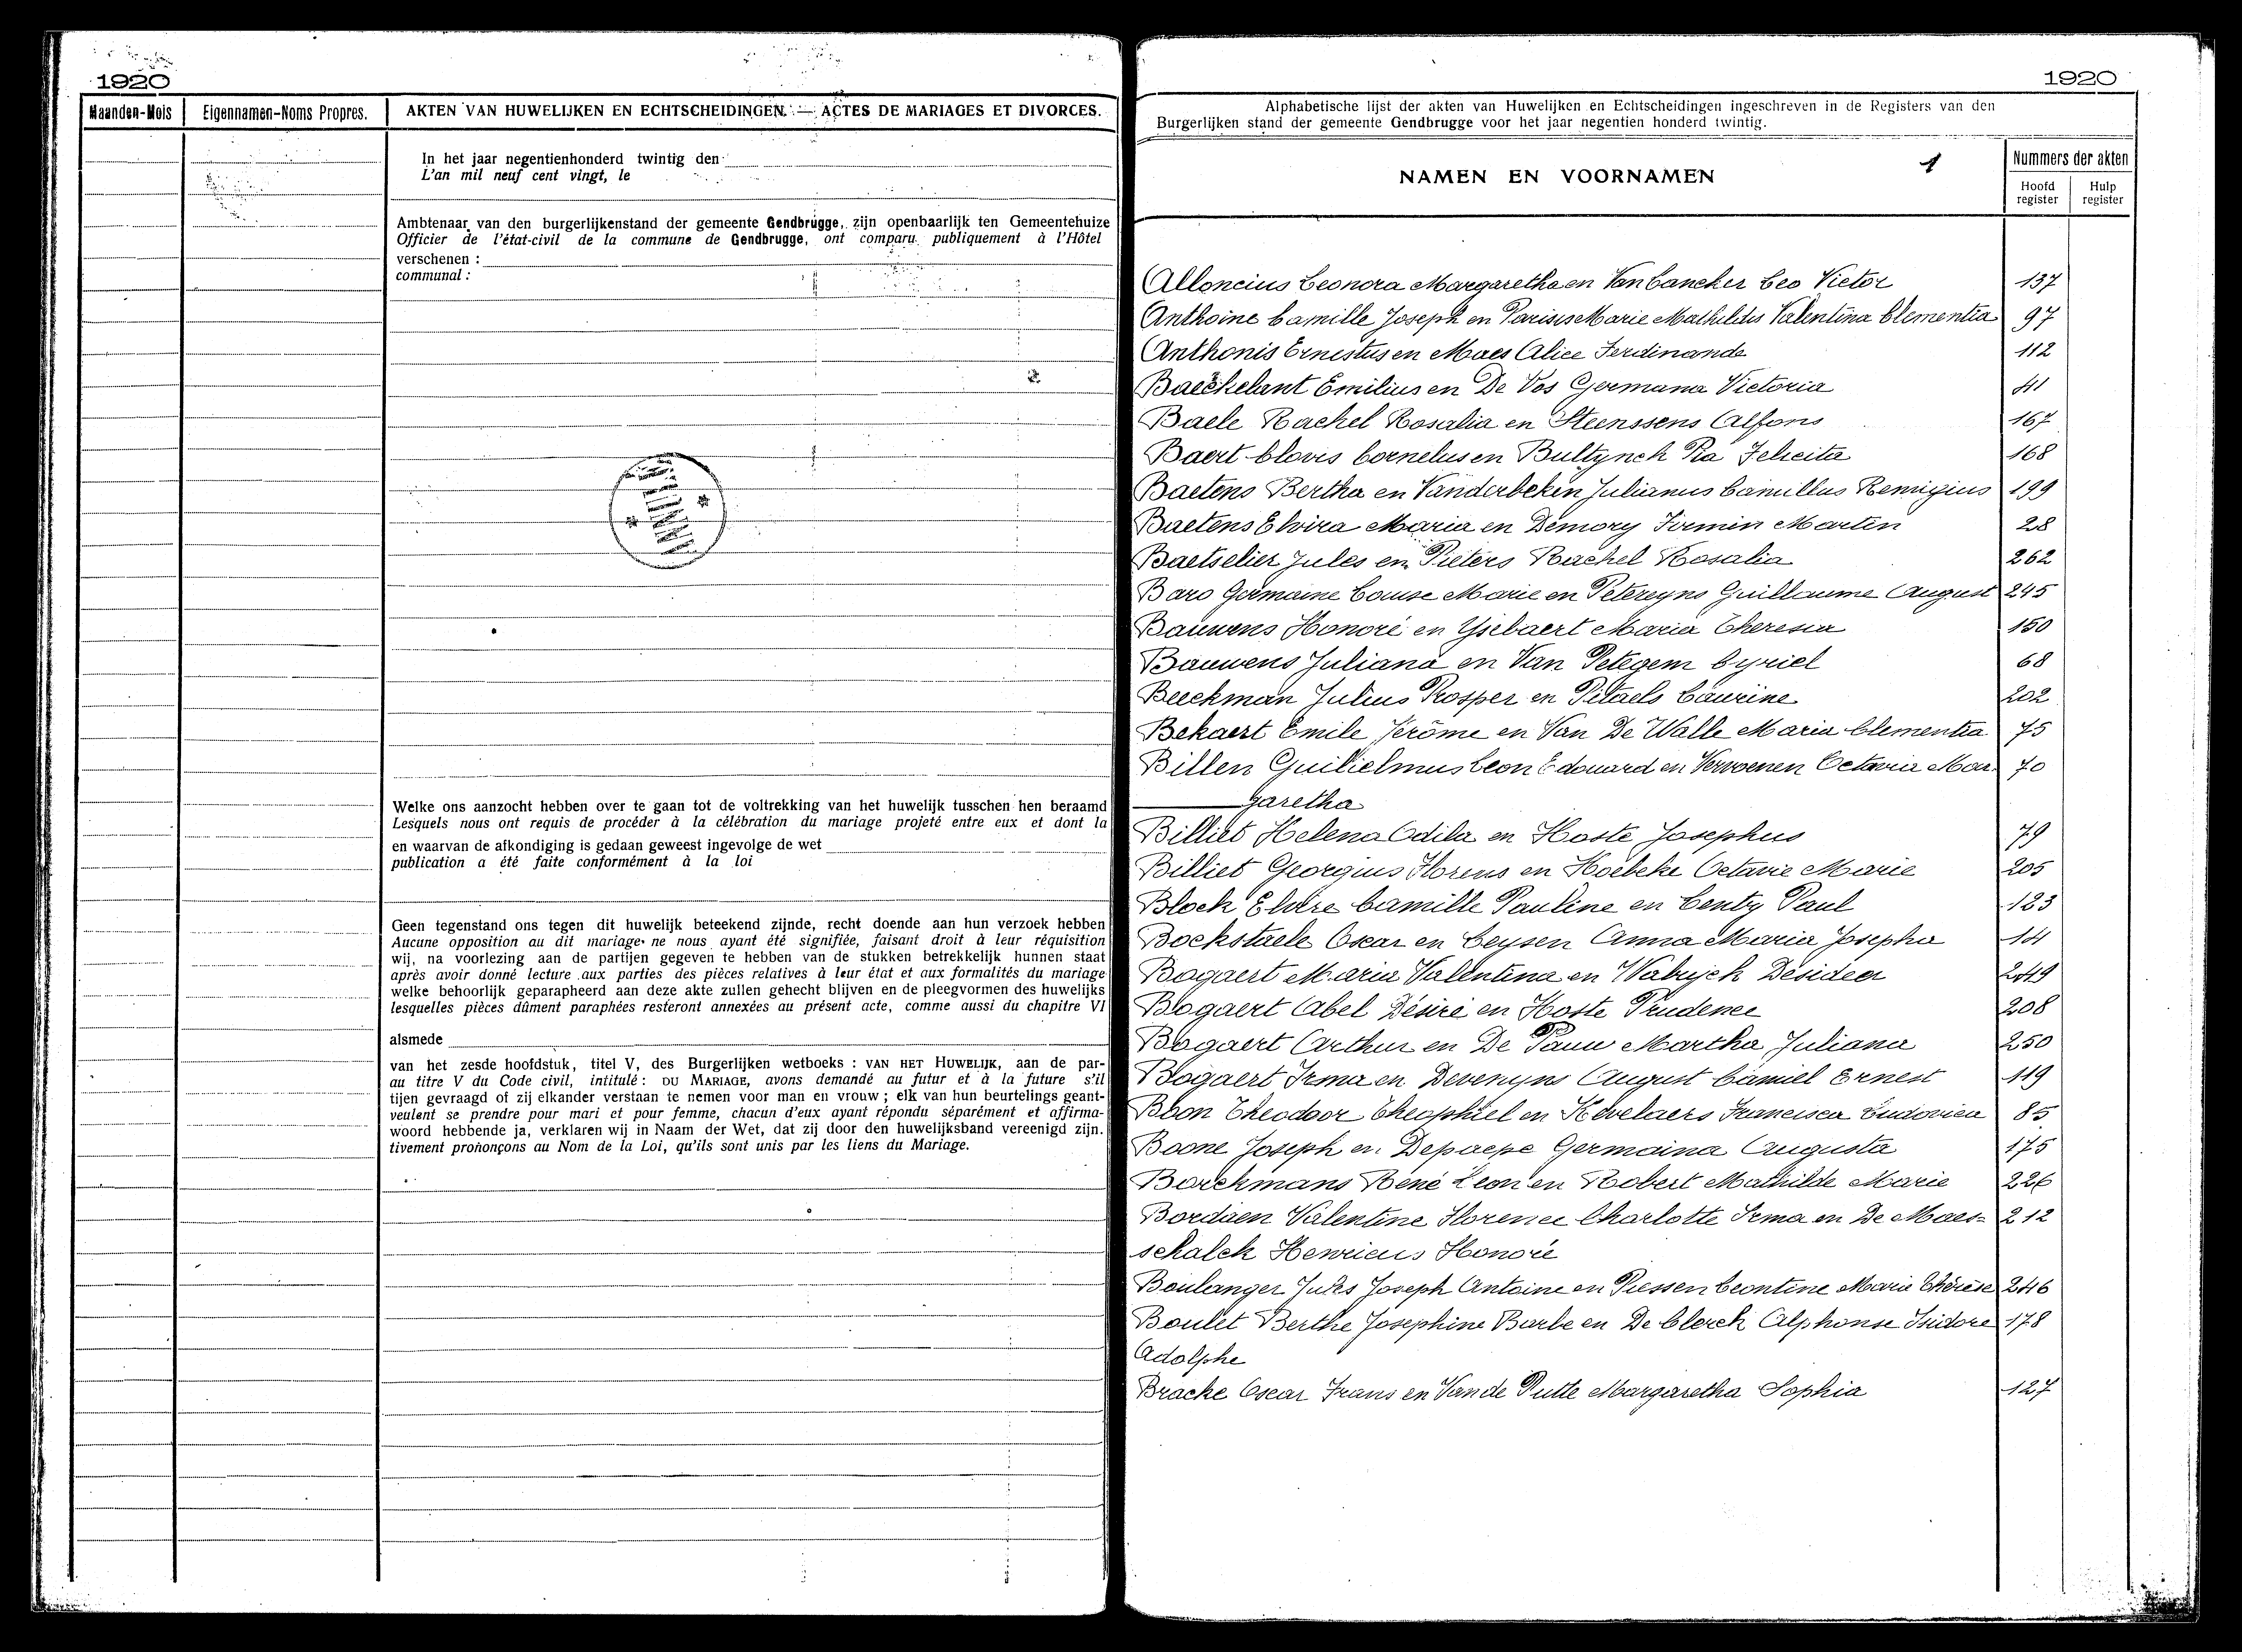 1920
Maanden-Mois Eigennamen-Noms Propres. AKTEN VAN HUWELIJKEN EN ECHTSCHEIDINGEN. — ACTES DE MARIAGES ET DIVORCES.
In het jaar negentienhonderd twintig den
L'an mil neuf cent vingt, le
Ambtenaar van den burgerlijkenstand der gemeente Gendbrugge, zijn openbaarlijk ten Gemeentehuize
Officier de l'état-civil de la commune de Gendbrugge, ont comparu publiquement à l'Hôtel
verschenen :
communal :
Welke ons aanzocht hebben over te gaan tot de voltrekking van het huwelijk tusschen hen beraamd
Lesquels nous ont requis de procéder à la célébration du mariage projeté entre eux et dont la
en waarvan de afkondiging is gedaan geweest ingevolge de wet
publication a été faite conformément à la loi
Geen tegenstand ons tegen dit huwelijk beteekend zijnde, recht doende aan hun verzoek hebben
Aucune opposition au dit mariage ne nous ayant été signifiée, faisant droit à leur réquisition
wij, na voorlezing aan de partijen gegeven te hebben van de stukken betrekkelijk hunnen staat
après avoir donné lecture aux parties des pièces relatives à leur état et aux formalités du mariage
welke behoorlijk geparapheerd aan deze akte zullen gehecht blijven en de pleegvormen des huwelijks
lesquelles pièces dûment paraphées resteront annexées au présent acte, comme aussi du chapitre VI
alsmede
van het zesde hoofdstuk, titel V, des Burgerlijken wetboeks : VAN HET HUWELIJK, aan de par-
au titre V du Code civil, intitulé : DU MARIAGE, avons demandé au futur et à la future s'il
tijen gevraagd of zij elkander verstaan te nemen voor man en vrouw ; elk van hun beurtelings geant-
veulent se prendre pour mari et pour femme, chacun d'eux ayant répondu séparément et affirma-
woord hebbende ja, verklaren wij in Naam der Wet, dat zij door den huwelijksband vereenigd zijn.
tivement prononçons au Nom de la Loi, qu'ils sont unis par les liens du Mariage.
1920
Alphabetische lijst der akten van Huwelijken en Echtscheidingen ingeschreven in de Registers van den
Burgerlijken stand der gemeente Gendbrugge voor het jaar negentien honderd twintig.
NAMEN EN VOORNAMEN 1 Nummers der akten
Hoofd register Hulp register
Alloncius Leonora Margaretha en Van Cancker Leo Victor 137
Anthoine Camille Joseph en Parisis Marie Mathildis Valentina Clementia 97
Anthonis Ernestus en Maes Alice Ferdinande 112
Baeckelant Emilius en De Vos Germana Victoria 41
Baele Rachel Rosalia en Steenssens Alfons 167
Baert Clovis Cornelus en Bultynck Pia Felicita 168
Baetens Bertha en Vanderbeken Julianus Camillus Remigius 199
Baetens Elvira Maria en Demory Firmin Martin 28
Baetselier Jules en Pieters Rachel Rosalia 262
Baro Germaine Louise Marie en Petereyns Guillaume August 245
Bauwens Honoré en Ysebaert Maria Theresia 150
Bauwens Juliana en Van Petegem Cyriel 68
Beeckman Julius Prosper en Pitaels Laurine 202
Bekaert Emile Jerôme en Van De Walle Maria Clementia 75
Billen Guilielmus Leon Edouard en Vervoenen Octavia Mar- 70
garetha
Billiet Helena Odila en Hoste Josephus 79
Billiet Georgius Florens en Hoebeke Octavie Marie 205
Block Elvire Camille Pauline en Centy Paul 123
Bockstaele Oscar en Leysen Anna Maria Josepha 14
Bogaert Maria Valentina en Walryck Desideer 249
Bogaert Abel Désiré en Hoste Prudence 208
Bogaert Arthur en De Pauw Martha Juliana 250
Bogaert Irma en Devenyns August Camiel Ernest 119
Boon Theodoor Theophiel en Hevelaers Francisca Ludovica 85
Boone Joseph en Depaepe Germaina Augusta 175
Borchmans René Leon en Robert Mathilde Marie 226
Bordaen Valentine Florence Charlotte Irma en De Maes- 212
schalck Henricus Honoré
Boulanger Jules Joseph Antoine en Piessen Leontine Marie Thérèse 246
Boulet Berthe Josephine Barbe en De Clerck Alphonse Isidore 178
Adolphe
Bracke Oscar Frans en Van de Putte Margaretha Sophia 127